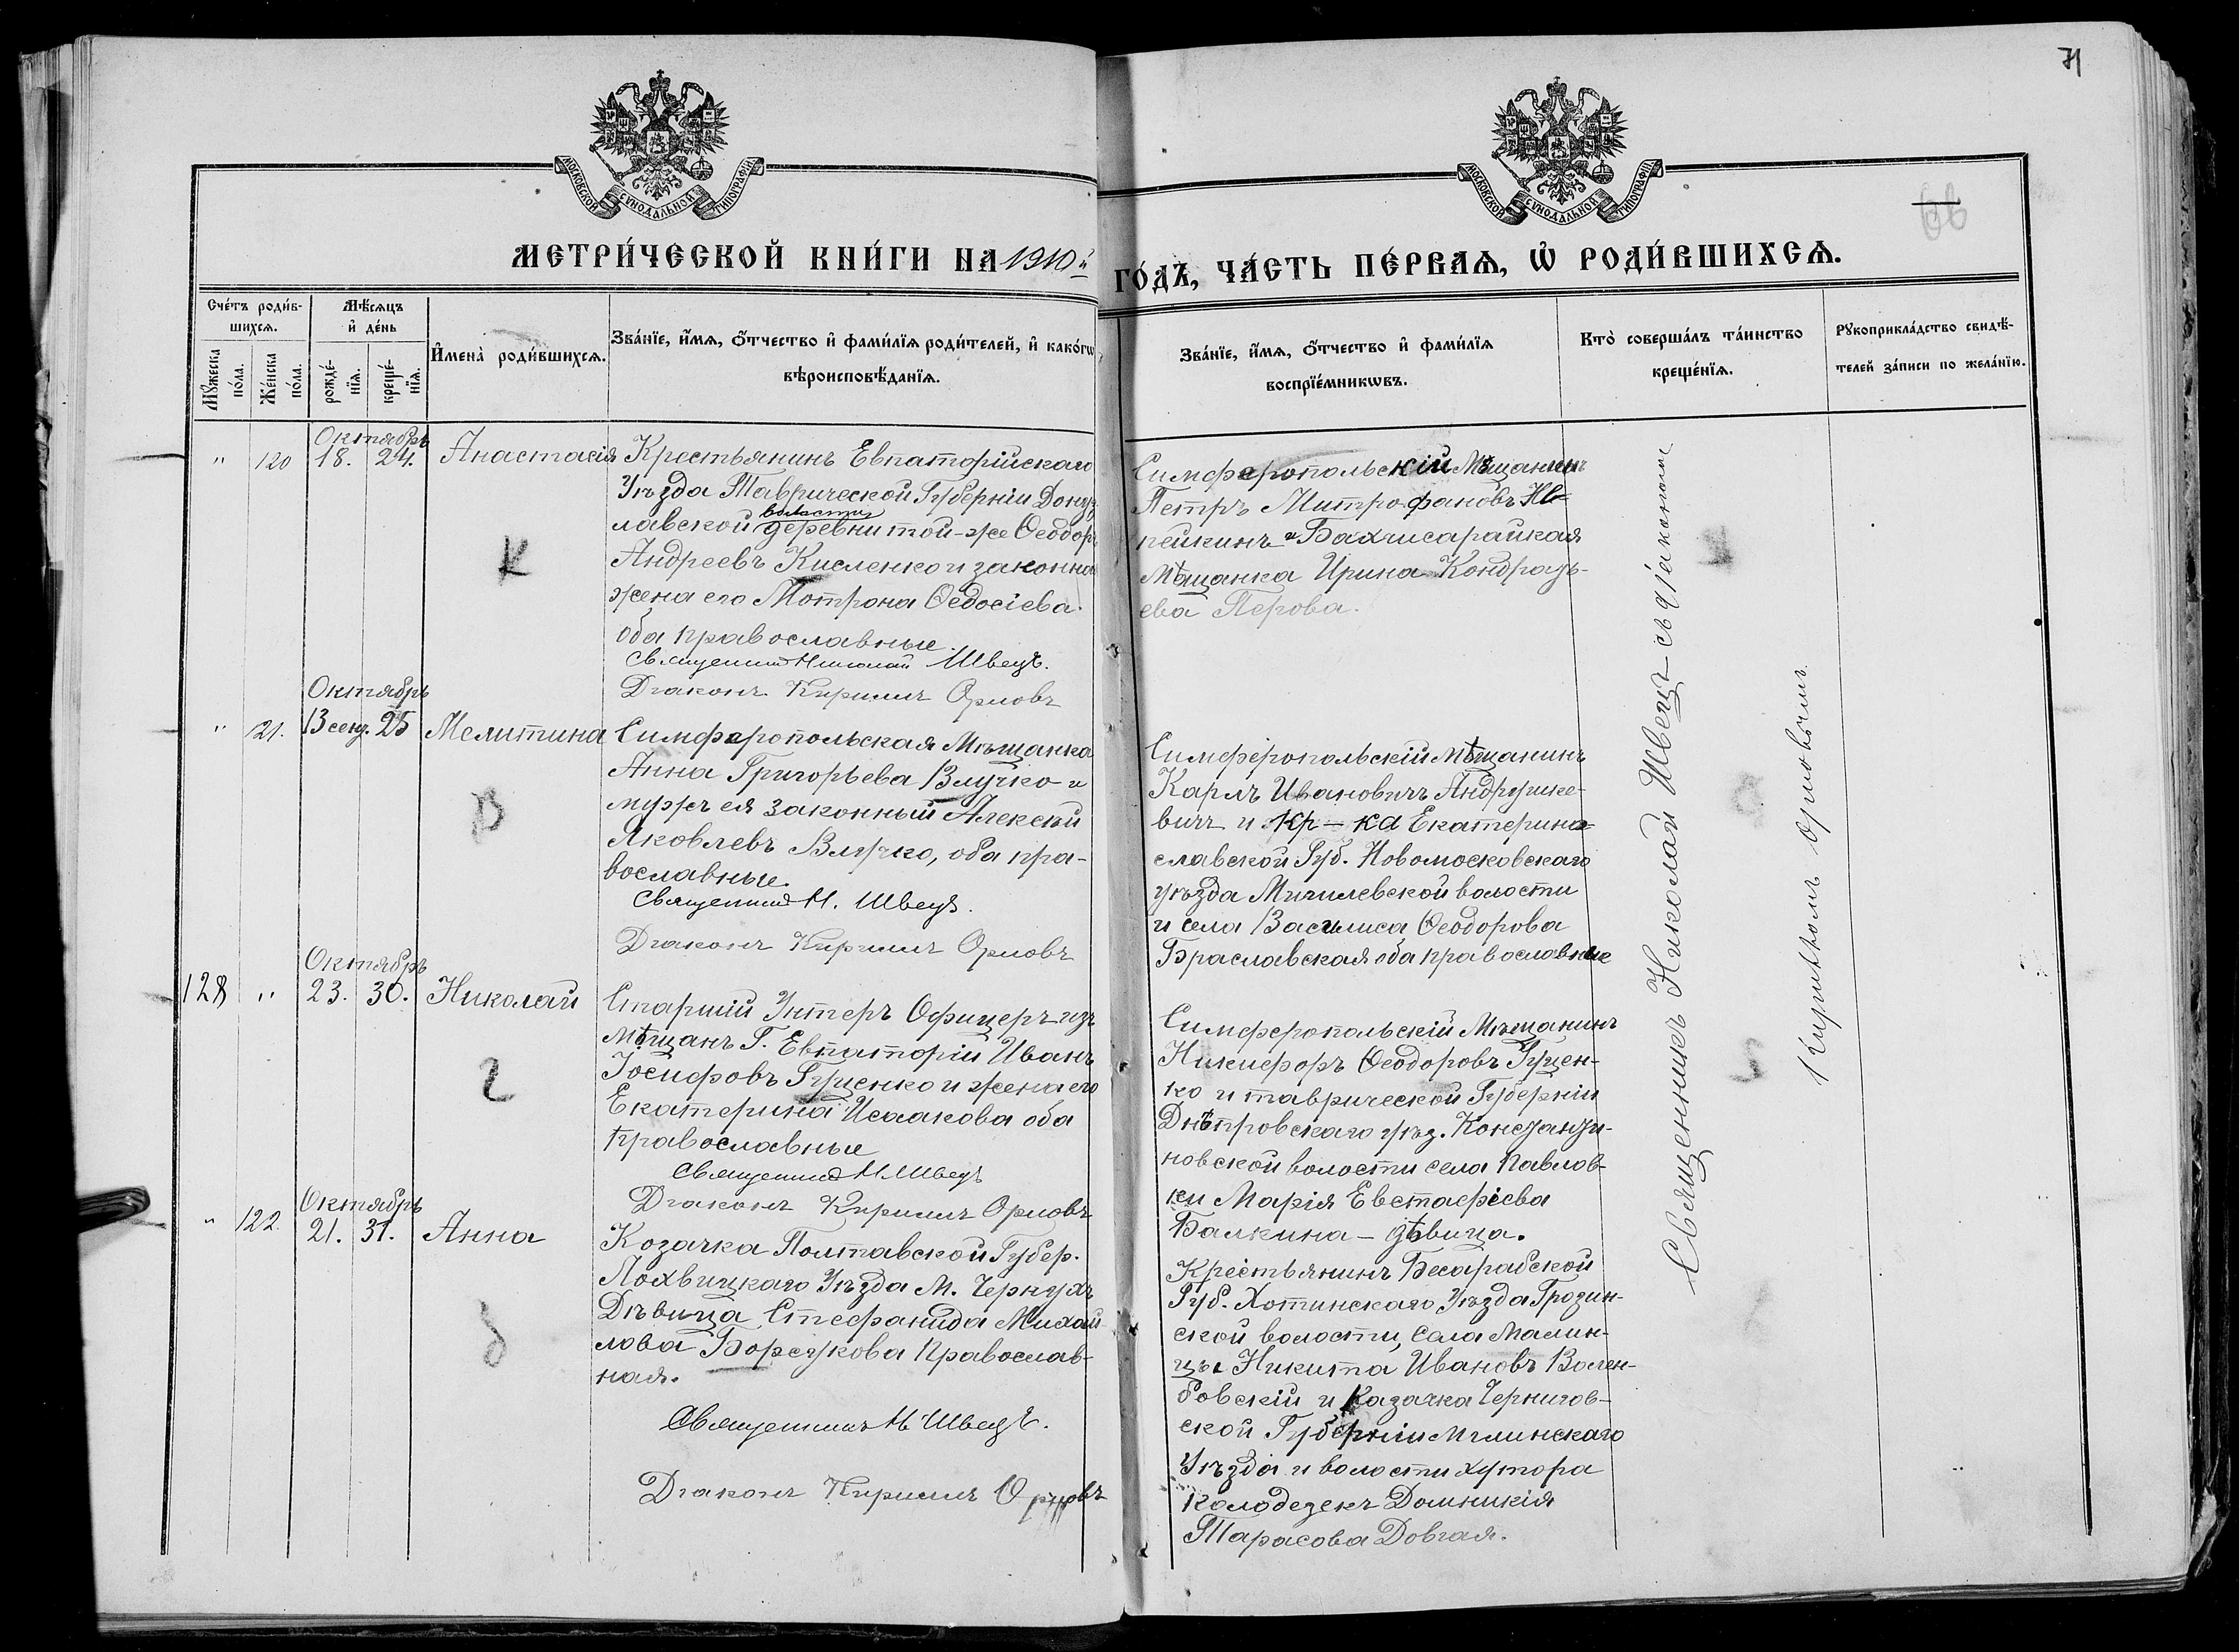 71
66
МОСКОВСКОЙ СѴНОДАЛЬНОЙ ТИПОГРАФІИ
МОСКОВСКОЙ СѴНОДАЛЬНОЙ ТИПОГРАФІИ
МЕТРИ́ЧЕСКОЙ КНИ́ГИ НА 1910 й
ГО́ДЪ, ЧА́СТЬ ПЕ́РВАѦ, Ѡ҆ РОДИ́ВШИХСѦ.
Сче́тъ роди́в-
шихсѧ.
Мꙋ́жеска
по́ла.
Же́нска
по́ла.
Мѣ́сѧцъ
и҆ де́нь
рожде́-
нїѧ.
креще́-
нїѧ.
И҆мена̀ роди́вшихсѧ.
Зва́нїе, и҆́мѧ, ѻ҆́тчество и҆ фами́лїѧ роди́телей, и҆ како́гѡ
вѣроисповѣ́данїѧ.
Зва́нїе, и҆́мѧ, ѻ҆́тчество и҆ фами́лїѧ
воспрїе́мникѡвъ.
Кто̀ соверша́лъ та́инство
креще́нїѧ.
Рꙋкоприкла́дство свидѣ́-
телей за́писи по жела́нїю.
Октябрь
" 120 18. 24. Анастасія
Крестьянинъ Евпаторійскаго
Уѣзда Таврической Губерніи Донуз-
лавской волости деревни той-же Ѳеодоръ
Андреевъ Кисленко и законная
жена его Мотрона Ѳедосіева
оба православные.
Священникъ Николай Швецъ.
Діаконъ Кириллъ Орловъ
К
Симферопольскій Мѣщанинъ
Петръ Митрофановъ
и Бахчисарайкая
Мѣщанка Ирина Кондрать-
ева Перова.
Октябрь
" 121. 13 сент. 25 Мелитина
Симферопольская Мѣщанка
Анна Григорьева Влучко и
мужъ ея законный Алексѣй
Яковлевъ Влучко, оба пра-
вославные.
Священникъ Н. Швецъ.
Діаконъ Кириллъ Орловъ
В
Симферопольскій мѣщанинъ
Карлъ Ивановичъ Андрушке-
вичъ и кр-ка Екатерино-
славской Губ. Новомосковскаго
уѣзда Мичилевской волости
и села Василиса Ѳеодорова
Браславская оба православные
Октябрь
128 " 23. 30. Николай
Старшій Унтеръ Офицеръ изъ
мѣщанъ Г. Евпаторіи Иванъ
Іосифовъ Гуценко и жена его
Екатерина Исаакова оба
православные
Священникъ Н. Швецъ
Діаконъ Кириллъ Орловъ
г
Симферопольскій Мѣщанинъ
Никифоръ Ѳеодоровъ Гуцен-
ко и таврической Губерніи
Днѣпровскаго уѣз. Константи-
новской волости села Павлов-
ки Марія Евстафіева
Балкина - дѣвица.
Октябрь
" 122 21. 31. Анна
Козачка Полтавской Губер.
Лохвицкаго Уѣзда М. Чернухъ
Дѣвица Стефанида Михай-
лова Борсукова Православ-
ная.
Священникъ Н Швецъ.
Діаконъ Кириллъ Орловъ
д
Крестьянинъ Бесарабской
Губ. Хотинскаго Уѣзда Грозин-
ской волости, села Малин-
цы Никита Ивановъ Волен-
бовскій и Казачка Чернигов-
ской Губерніи Мглинскаго
Уѣзда и волости хутора
Колодезекъ Домникія
Тарасова Довгая.
Священникъ Николай Швецъ съ діакономъ
Кирилломъ Орловымъ